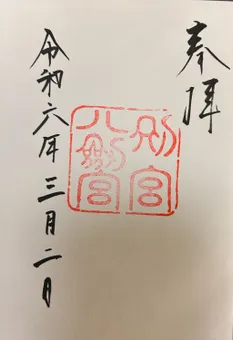 奉拝
別宮
八剱宮
令和六年三月二日